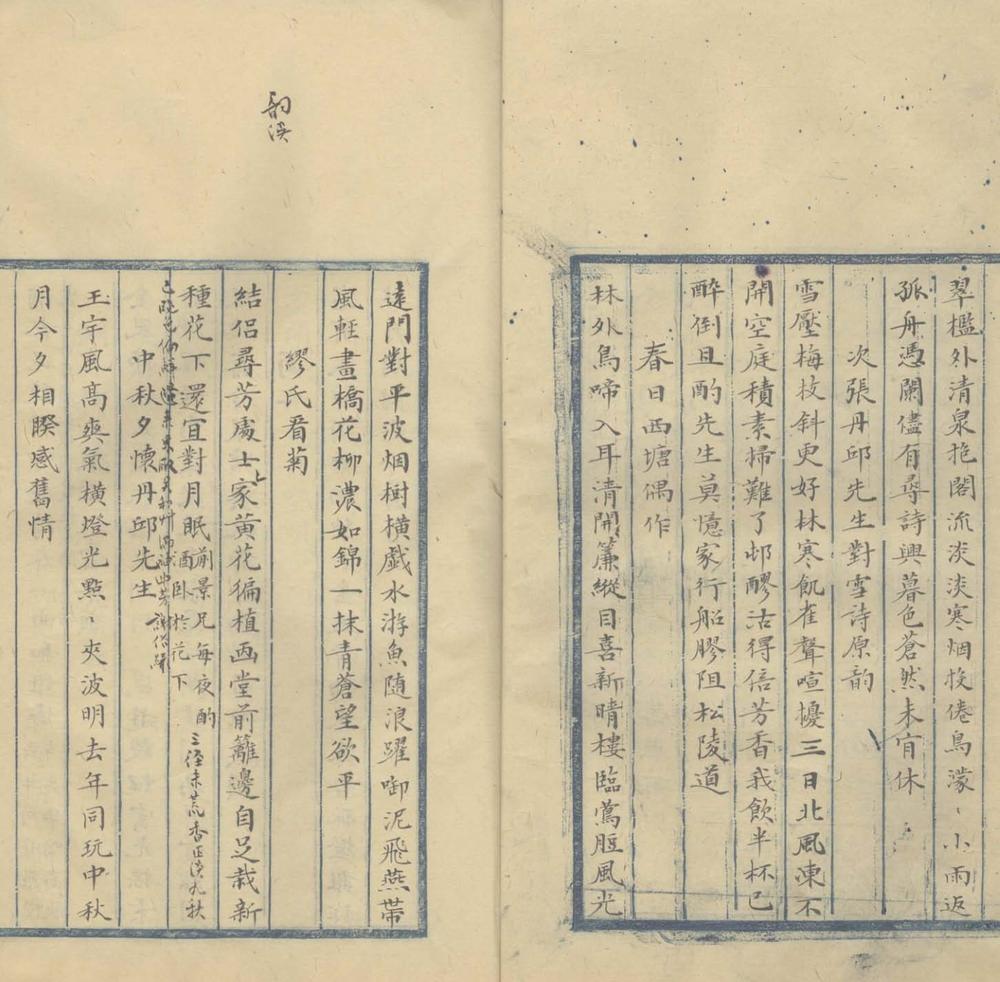 翠檻外清泉抱閣流淡淡寒烟投倦鳥濛、小雨返
孤舟憑闌儘有尋詩興暮色蒼然未肯休
次張丹邱先生對雪詩原韵
雪壓梅枝斜更好林寒飢雀聲喧擾三日北風凍不
開空庭積素掃難了邨醪沽得倍芳香我飲半杯已
醉倒且酌先生莫憶家行船膠阻松陵道
春日西塘偶作
林外鳥啼入耳清開簾縱目喜新晴樓臨鶯脰風光
遠門對平波烟樹橫戯水游魚随浪躍啣泥飛燕帶
風輕畫橋花柳濃如錦一抹青蒼望欲平
繆氏看菊
結侣尋芳處士家黃花徧植西堂前籬邊自足栽新
種花下還宜對月眠
前景凡每夜酌
酒卧於花下
三徑未荒香正淡九秋
中秋夕懷丹邱先生
玉宇風高爽氣橫燈光點、夾波明去年同玩中秋
月今夕相睽感舊情